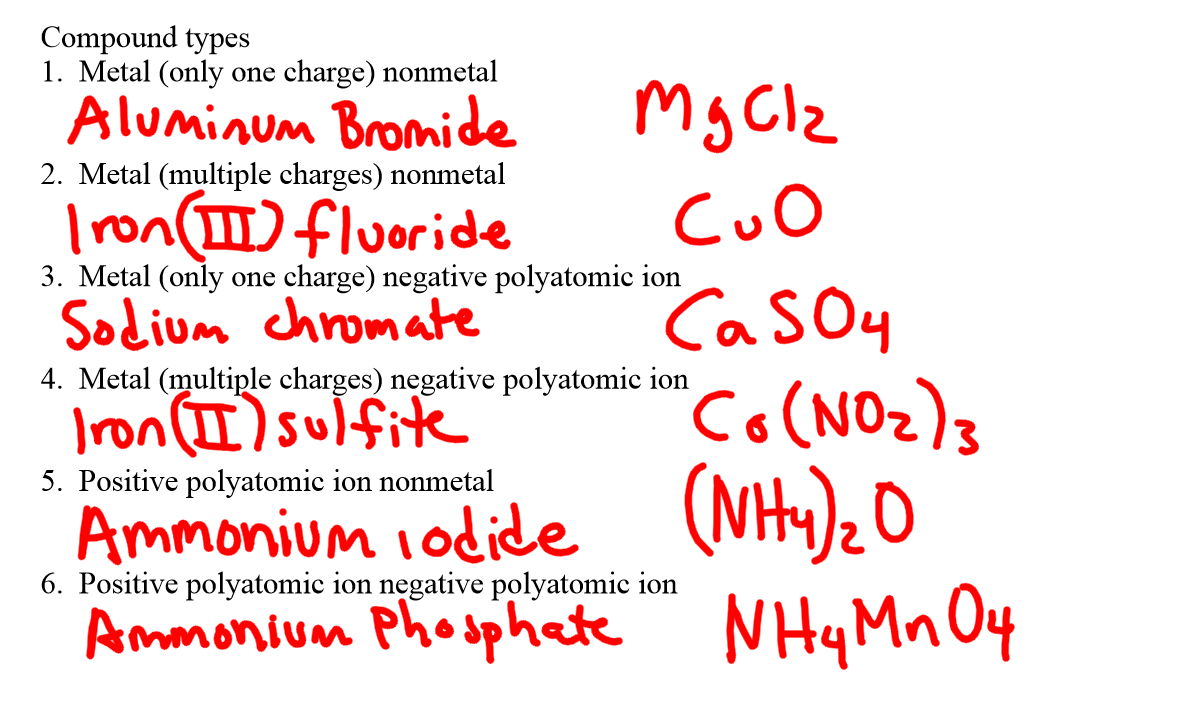 Compound types
1. Metal (only one charge) nonmetal
Aluminum Bromide MgCl2
2. Metal (multiple charges) nonmetal
Iron(III) fluoride CuO
3. Metal (only one charge) negative polyatomic ion
Sodium chromate CaSO4
4. Metal (multiple charges) negative polyatomic ion
Iron(II) sulfite Co(NO2)3
5. Positive polyatomic ion nonmetal
Ammonium iodide (NH4)2O
6. Positive polyatomic ion negative polyatomic ion
Ammonium Phosphate NH4MnO4